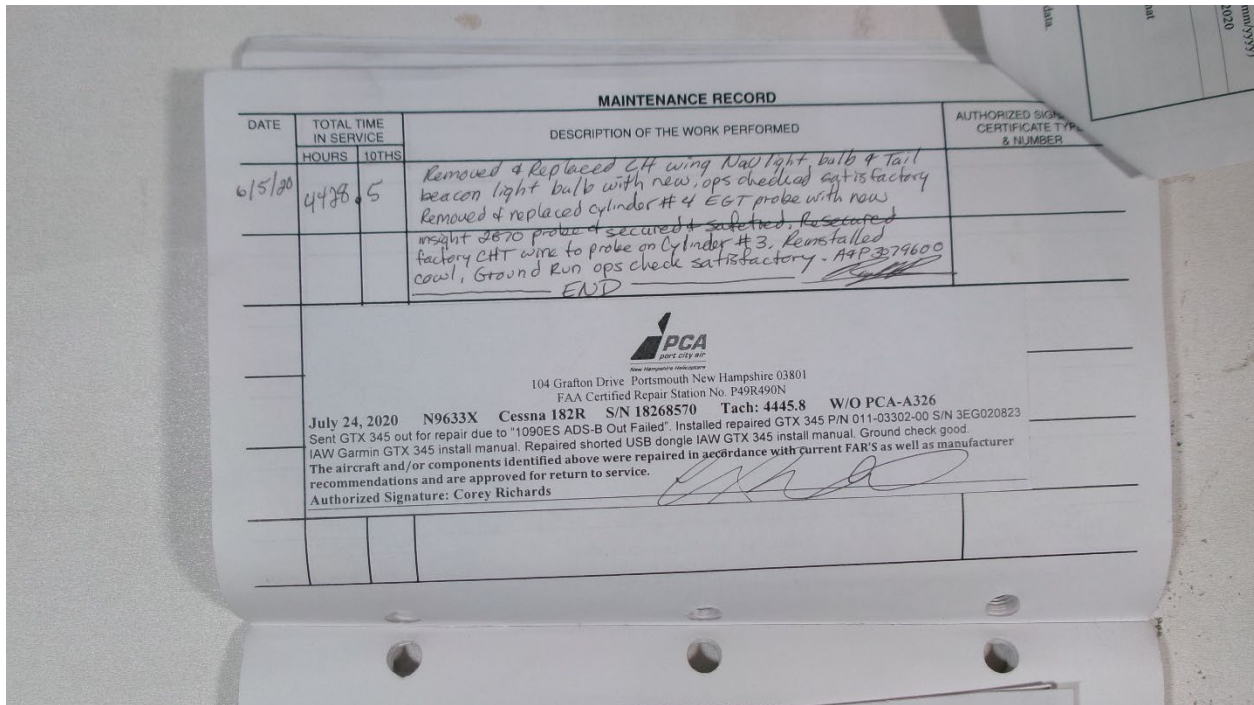 mm/yyyy)
2020
nat
data.
MAINTENANCE RECORD
DATE
TOTAL TIME
IN SERVICE
HOURS 10THS
DESCRIPTION OF THE WORK PERFORMED
AUTHORIZED SIGN
CERTIFICATE TYPE
& NUMBER
6/5/20 4428.5
Removed & Replaced LH wing Nav light bulb & Tail
beacon light bulb with new, ops checked satisfactory
Removed & replaced cylinder # 4 EGT probe with new
insight 2870 probe & secured & safetied. Resecured
factory CHT wire to probe on Cylinder # 3. Reinstalled
cowl, Ground Run ops check satisfactory - A&P 3279600
END
PCA
port city air
New Hampshire Helicopters
104 Grafton Drive Portsmouth New Hampshire 03801
FAA Certified Repair Station No. P49R490N
July 24, 2020 N9633X Cessna 182R S/N 18268570 Tach: 4445.8 W/O PCA-A326
Sent GTX 345 out for repair due to "1090ES ADS-B Out Failed". Installed repaired GTX 345 P/N 011-03302-00 S/N 3EG020823
IAW Garmin GTX 345 install manual. Repaired shorted USB dongle IAW GTX 345 install manual. Ground check good.
The aircraft and/or components identified above were repaired in accordance with current FAR'S as well as manufacturer
recommendations and are approved for return to service.
Authorized Signature: Corey Richards